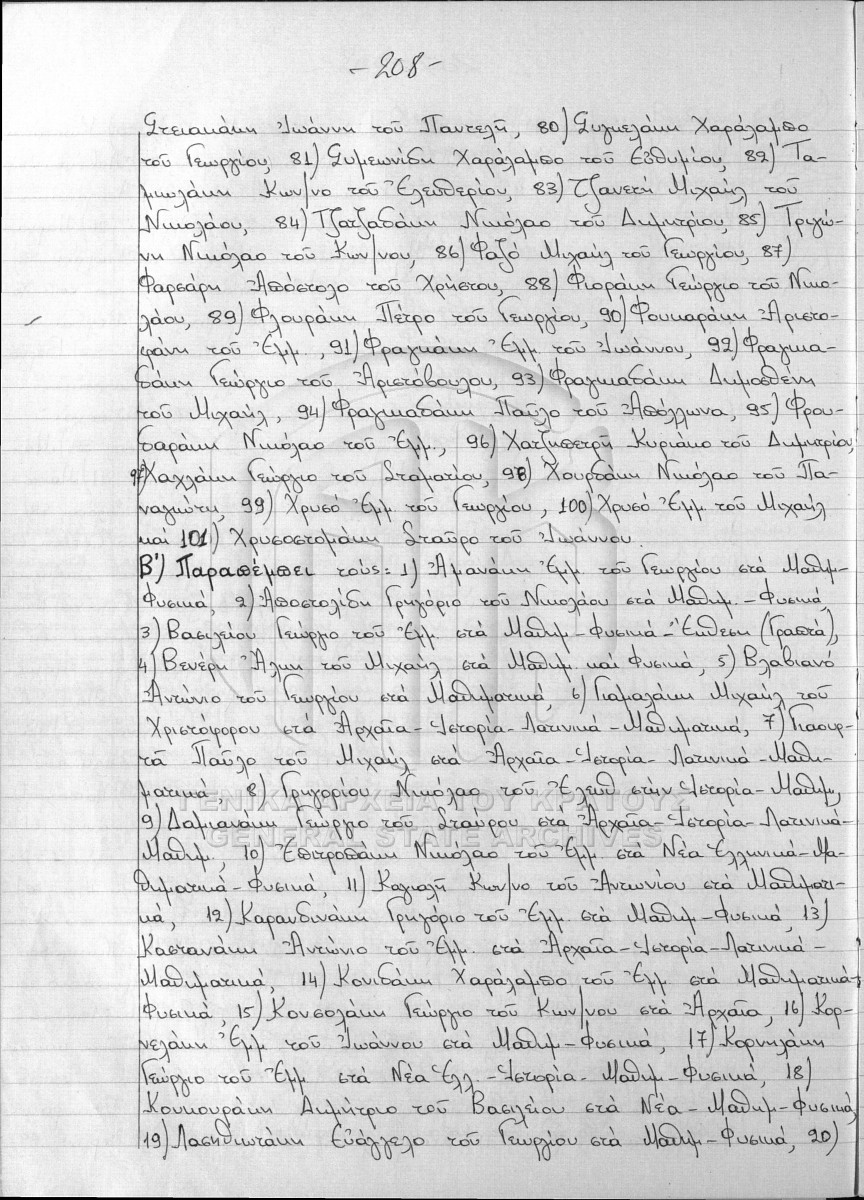 -208-
Στειακάκη Ἰωάννη τοῦ Παντελῆ, 80) Συγκελάκη Χαράλαμπο
τοῦ Γεωργίου, 81) Συμεωνίδη Χαράλαμπο τοῦ Εὐθυμίου, 82) Τα-
μπωλάκη Κων/νο τοῦ Ἐλευθερίου, 83) Τζανετῆ Μιχαήλ τοῦ
Νικολάου, 84) Τζατζαδάκη Νικόλαο τοῦ Δημητρίου, 85) Τριγώ-
νη Νικόλαο τοῦ Κων/νου, 86) Φαζό Μιχαήλ τοῦ Γεωργίου, 87)
Φαρσάρη Ἀπόστολο τοῦ Χρήστου, 88) Φιοράκη Γεώργιο τοῦ Νικο-
λάου, 89) Φλουράκη Πέτρο τοῦ Γεωργίου, 90) Φουκαράκη Ἀριστο-
φάνη τοῦ Ἐμμ., 91) Φραγκάκη Ἐμμ. τοῦ Ἰωάννου, 92) Φραγκια-
δάκη Γεώργιο τοῦ Ἀριστόβουλου, 93) Φραγκιαδάκη Δημοσθένη
τοῦ Μιχαήλ, 94) Φραγκιαδάκη Παῦλο τοῦ Ἀπόλλωνα, 95) Φρου-
δαράκη Νικόλαο τοῦ Ἐμμ., 96) Χατζηπετρῆ Κυριάκο τοῦ Δημητρίου,
97) Χαχλάκη Γεώργιο τοῦ Σταματίου, 98) Χουρδάκη Νικόλαο τοῦ Πα-
ναγιώτη, 99) Χρυσό Ἐμμ. τοῦ Γεωργίου, 100) Χρυσό Ἐμμ. τοῦ Μιχαήλ
καί 101) Χρυσοστομάκη Σταῦρο τοῦ Ἰωάννου.
Β') Παραπέμπει τούς: 1) Ἀμανάκη Ἐμμ. τοῦ Γεωργίου στά Μαθημ-
Φυσικά, 2) Ἀποστολίδη Γρηγόριο τοῦ Νικολάου στά Μαθημ.-Φυσικά,
3) Βασιλείου Γεώργιο τοῦ Ἐμμ. στά Μαθημ-Φυσικά-Ἔκθεση (Γραπτά),
4) Βενέρη Ἄλκη τοῦ Μιχαήλ στά Μαθημ. καί Φυσικά, 5) Βλαβιανό
Ἀντώνιο τοῦ Γεωργίου στά Μαθηματικά, 6) Γιαμαλάκη Μιχαήλ τοῦ
Χριστόφορου στά Ἀρχαῖα-Ἱστορία-Λατινικά-Μαθηματικά, 7) Γιαουρ-
τᾶ Παῦλο τοῦ Μιχαήλ στά Ἀρχαῖα-Ἱστορία-Λατινικά-Μαθη-
ματικά, 8) Γρηγορίου Νικόλαο τοῦ Ἐλευθ στήν Ἱστορία-Μαθημ,
9) Δαμιανάκη Γεώργιο τοῦ Σταύρου στα Ἀρχαῖα-Ἱστορία-Λατινικά-
Μαθημ., 10) Ἐπιτροπάκη Νικόλαο τοῦ Ἐμμ. στά Νέα Ἑλληνικά-Μα-
θηματικά-Φυσικά, 11) Καγιαλῆ Κων/νο τοῦ Ἀντωνίου στά Μαθηματι-
κά, 12) Καρανδινάκη Γρηγόριο τοῦ Ἐμμ. στά Μαθημ-Φυσικά, 13)
Καστανάκη Ἀντώνιο τοῦ Ἐμμ. στά Ἀρχαῖα-Ἱστορία-Λατινικά-
Μαθηματικά, 14) Κονιδάκη Χαράλαμπο τοῦ Ἐμμ στά Μαθηματικά-
Φυσικά, 15) Κονσολάκη Γεώργιο τοῦ Κων/νου στά Ἀρχαῖα, 16) Κορ-
νελάκη Ἐμμ τοῦ Ἰωάννου στά Μαθημ-Φυσικά, 17) Κορνηλάκη
Γεώργιο τοῦ Ἐμμ στά Νέα Ἑλλ.-Ἱστορία-Μαθημ-Φυσικά, 18)
Κουκουράκη Δημήτριο τοῦ Βασιλείου στά Νέα-Μαθημ-Φυσικά,
19) Λασηθιωτάκη Εὐάγγελο τοῦ Γεωργίου στά Μαθημ-Φυσικά, 20)
ΓΕΝΙΚΑ ΑΡΧΕΙΑ ΤΟΥ ΚΡΑΤΟΥΣ
GENERAL STATE ARCHIVES